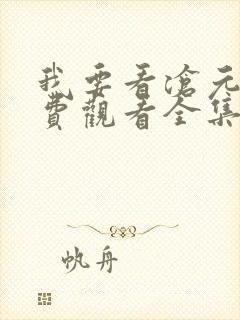 我要看滄元
費觀看全集
帆舟